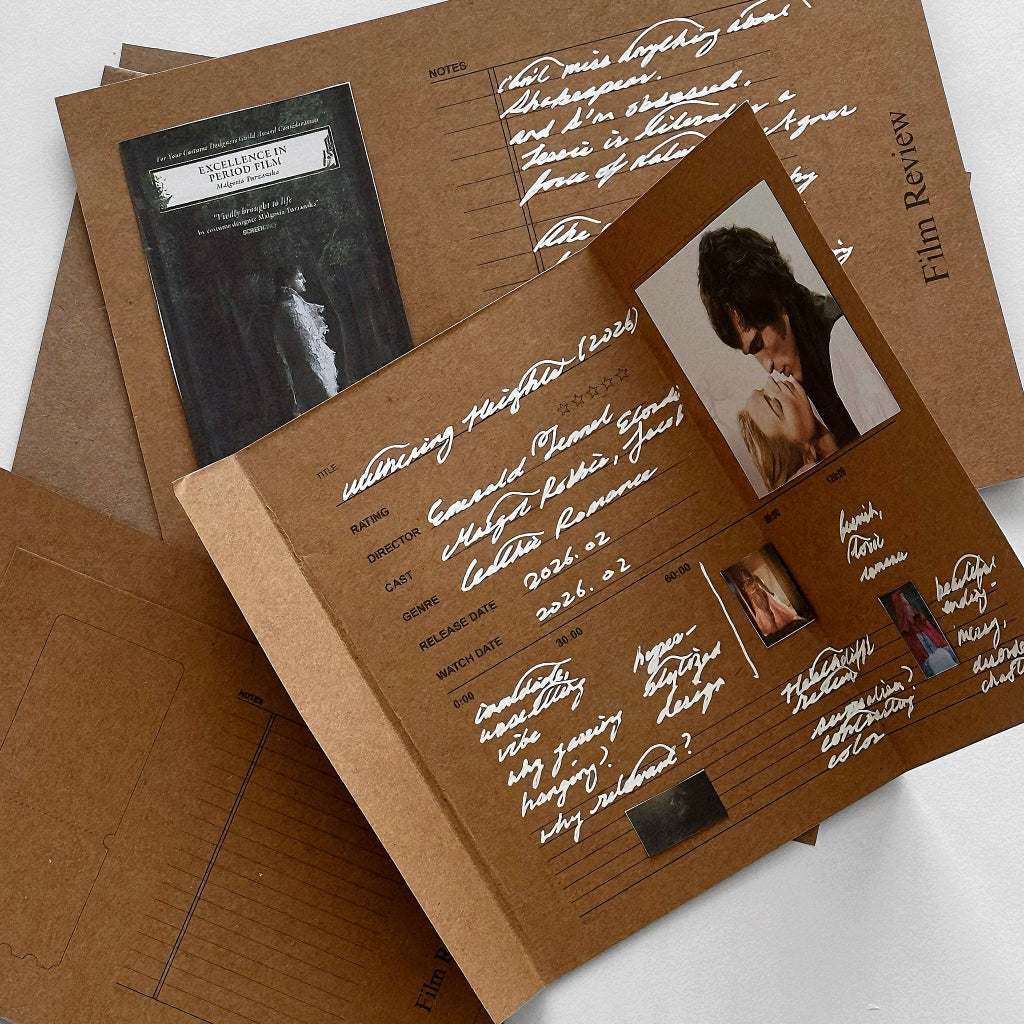 NOTES
can't miss anything about
Shakespear.
and I'm obsessed.
Jessie is literally a
force of Nature Agnes
by
the
For Your Costume Designers Guild Award Consideration
EXCELLENCE IN
PERIOD FILM
Malgosia Turzanska
"Vividly brought to life
by costume designer Malgosia Turzanska"
SCREENDAILY
Film Review
TITLE Wuthering Heights (2026)
RATING ☆☆☆☆☆
DIRECTOR Emerald Fennel
CAST Margot Robbie, Jacob Elordi
GENRE Gothic Romance
RELEASE DATE 2026.02
WATCH DATE 2026.02
0:00
30:00
60:00
90:00
120:00
immediate,
unsettling
vibe
why
hanging?
why relevant?
hyper-
stylized
design
Heathcliff
return
surrealism?
contrasting
color
toxic
romance
beautiful
ending-
messy,
NOTES
Film R